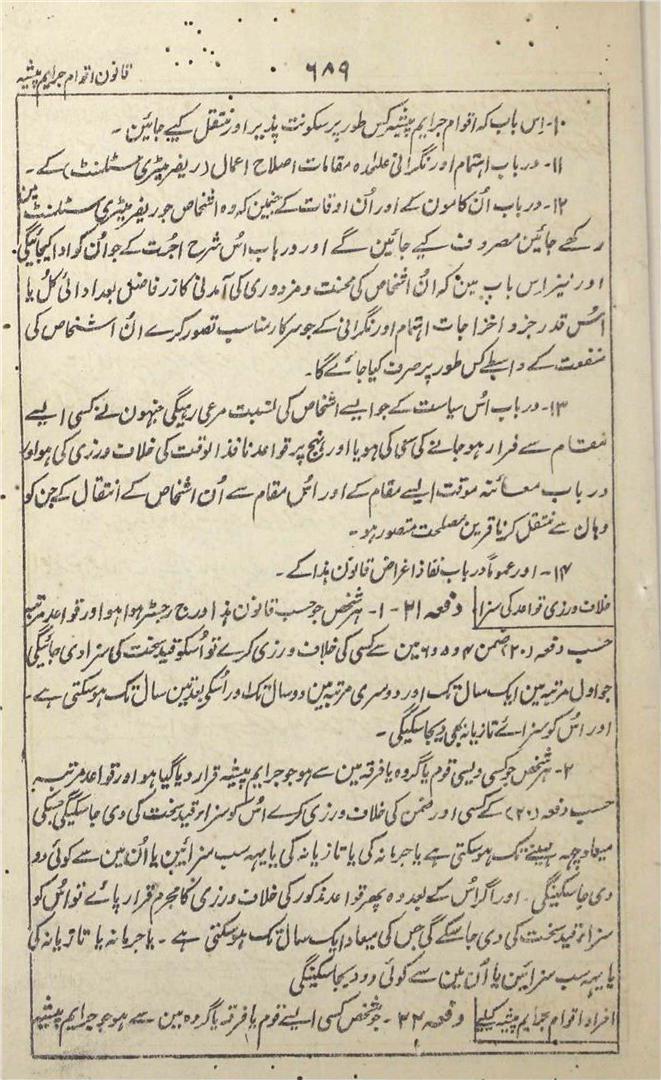 قانون اقوام جرایم پیشیہ
۶۸۹
۱۰- اس باب کہ اقوام جرایم پیشیہ کس طور پر سکونت پذیر اور منتقل کیے جائین -
۱۱- در باب اہتمام اور نگرانی علٰحدہ مقامات اصلاح اعمال (ریفر میٹری سٹلمنٹ) کے -
۱۲- در باب اُن کامون کے اور اُن اوقات کے جنمین کہ وہ اشخاص جو ریفر میٹری سٹلمنٹ مین
رکھے جائین مصروف کیے جائین گے اور در باب اُس شرح اجرت کے جو اُن کو ادا کیجائیگی
اور نیز اس باب مین کہ اُن اشخاص کی محنت و مزدوری کی آمدنی کا زر فاضل بعد ادائی کُل یا
اُس قدر جزو اخراجات اہتمام اور نگرانی کے جو سرکار مناسب تصور کرے اُن اشخاص کی
منفعت کے واسطے کس طور پر صرف کیا جائے گا -
۱۳- در باب اُس سیاست کے جو ایسے اشخاص کی نسبت مرعی رہیگی جنہون نے کسی ایسے
مقام سے فرار ہو جانے کی سعی کی ہو یا اور نہج پر قواعد نافذ الوقت کی خلاف ورزی کی ہو اور
در باب معائنہ موقت ایسے مقام کے اور اُس مقام سے اُن اشخاص کے انتقال کے جن کو
وہان سے منتقل کرنا قرین مصلحت متصور ہو -
۱۴- اور عموماً در باب نفاذ اغراض قانون ہذا کے -
خلاف ورزی قواعد کی سزا دفعہ ۲۱ - ۱- ہر شخص جو حسب قانون ہذا درج رجسٹر ہوا ہو اور قواعد مرتبہ
حسب دفعہ (۲۰) ضمن ۴ و ۵ و ۶ مین سے کسی کی خلاف ورزی کرے تو اُسکو قید سخت کی سزا دی جائیگی
جو اول مرتبہ مین ایک سال تک اور دوسری مرتبہ مین دو سال تک اور اُسکے بعد تین سال تک ہو سکتی ہے -
اور اُس کو سزائے تازیانہ بھی دیجا سکیگی -
۲- ہر شخص جو کسی دیسی قوم یا گروہ یا فرقہ مین سے ہو جو جرایم پیشیہ قرار دیا گیا ہو اور قواعد مرتبہ
حسب دفعہ (۲۰) کے کسی اور ضمن کی خلاف ورزی کرے اُس کو سزاء قید سخت کی دی جا سکیگی جسکی
میعاد چھہ مہینے تک ہو سکتی ہے یا جرمانہ کی یا تازیانہ کی یا یہہ سب سزائین یا اُن مین سے کوئی دو
دی جا سکینگی - اور اگر اُس کے بعد وہ پھر قواعد مذکور کی خلاف ورزی کا مجرم قرار پائے تو اُس کو
سزاء قید سخت کی دی جا سکے گی جس کی میعاد ایک سال تک ہو سکتی ہے - یا جرمانہ یا تازیانہ کی
یا یہہ سب سزائین یا اُن مین سے کوئی دو دیجا سکینگی
افراد اقوام جرایم پیشیہ کیلیے دفعہ ۲۲ - جو شخص کسی ایسے قوم یا فرقہ یا گروہ مین سے ہو جو جرایم پیشیہ